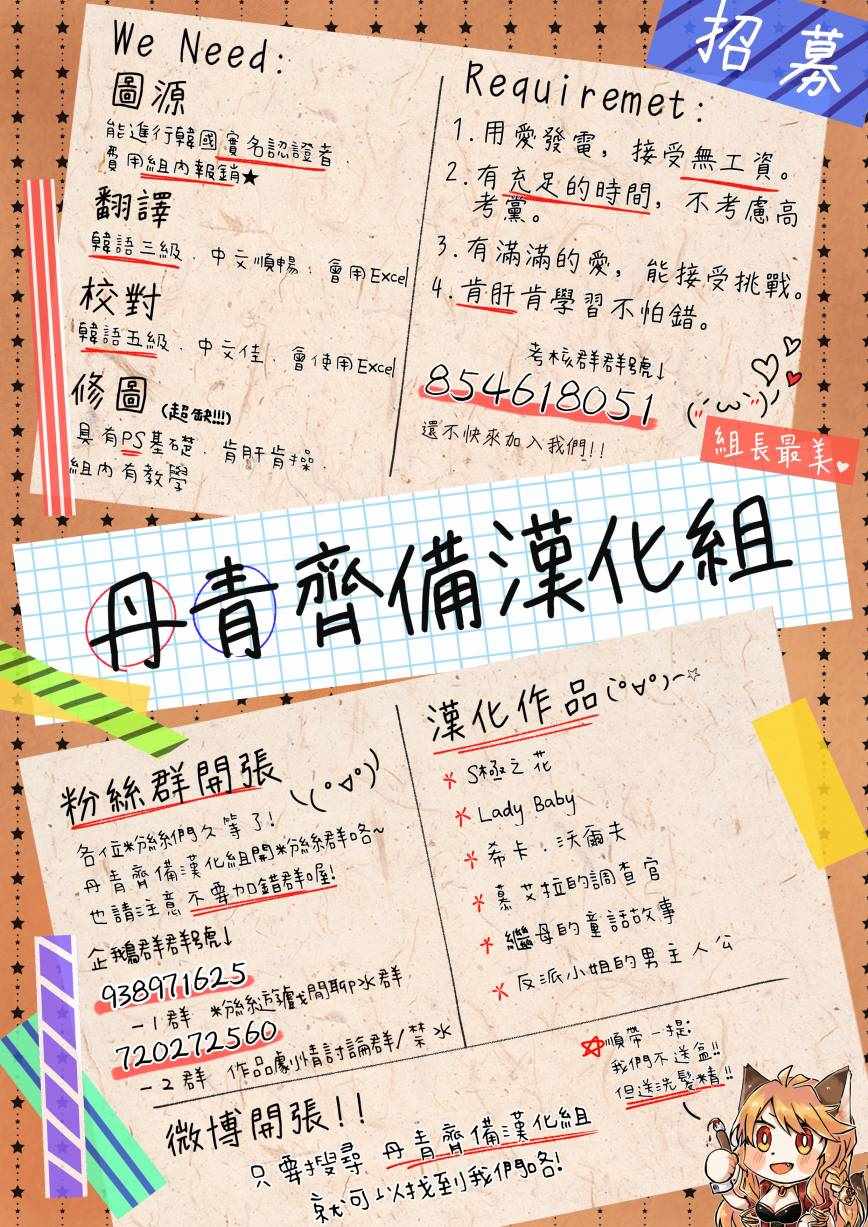 招募
We Need:
圖源
能進行韓國實名認證者.
費用組內報銷★
翻譯
韓語三級.中文順暢.會用Excel
校對
韓語五級.中文佳.會使用Excel
修圖(超缺!!!)
具有PS基礎.肯肝肯操.
組內有教學
Requiremet:
1.用愛發電,接受無工資。
2.有充足的時間,不考慮高
考黨。
3.有滿滿的愛,能接受挑戰。
4.肯肝肯學習不怕錯。
考核群群號↓
854618051
還不快來加入我們!!
組長最美
丹青齊備漢化組
粉絲群開張
各位粉絲們久等了!
丹青齊備漢化組開粉絲群咯~
也請注意不要加錯群喔!
企鵝群群號↓
938971625
-1群 粉絲遊戲閒聊水群
720272560
-2群 作品劇情討論群/禁水
漢化作品
S極之花
Lady Baby
希卡.沃爾夫
慕艾拉的調查官
繼母的童話故事
反派小姐的男主人公
順帶一提:
我們不送盆!!
但送洗髮精!!
微博開張!!
只要搜尋 丹青齊備漢化組
就可以找到我們咯!